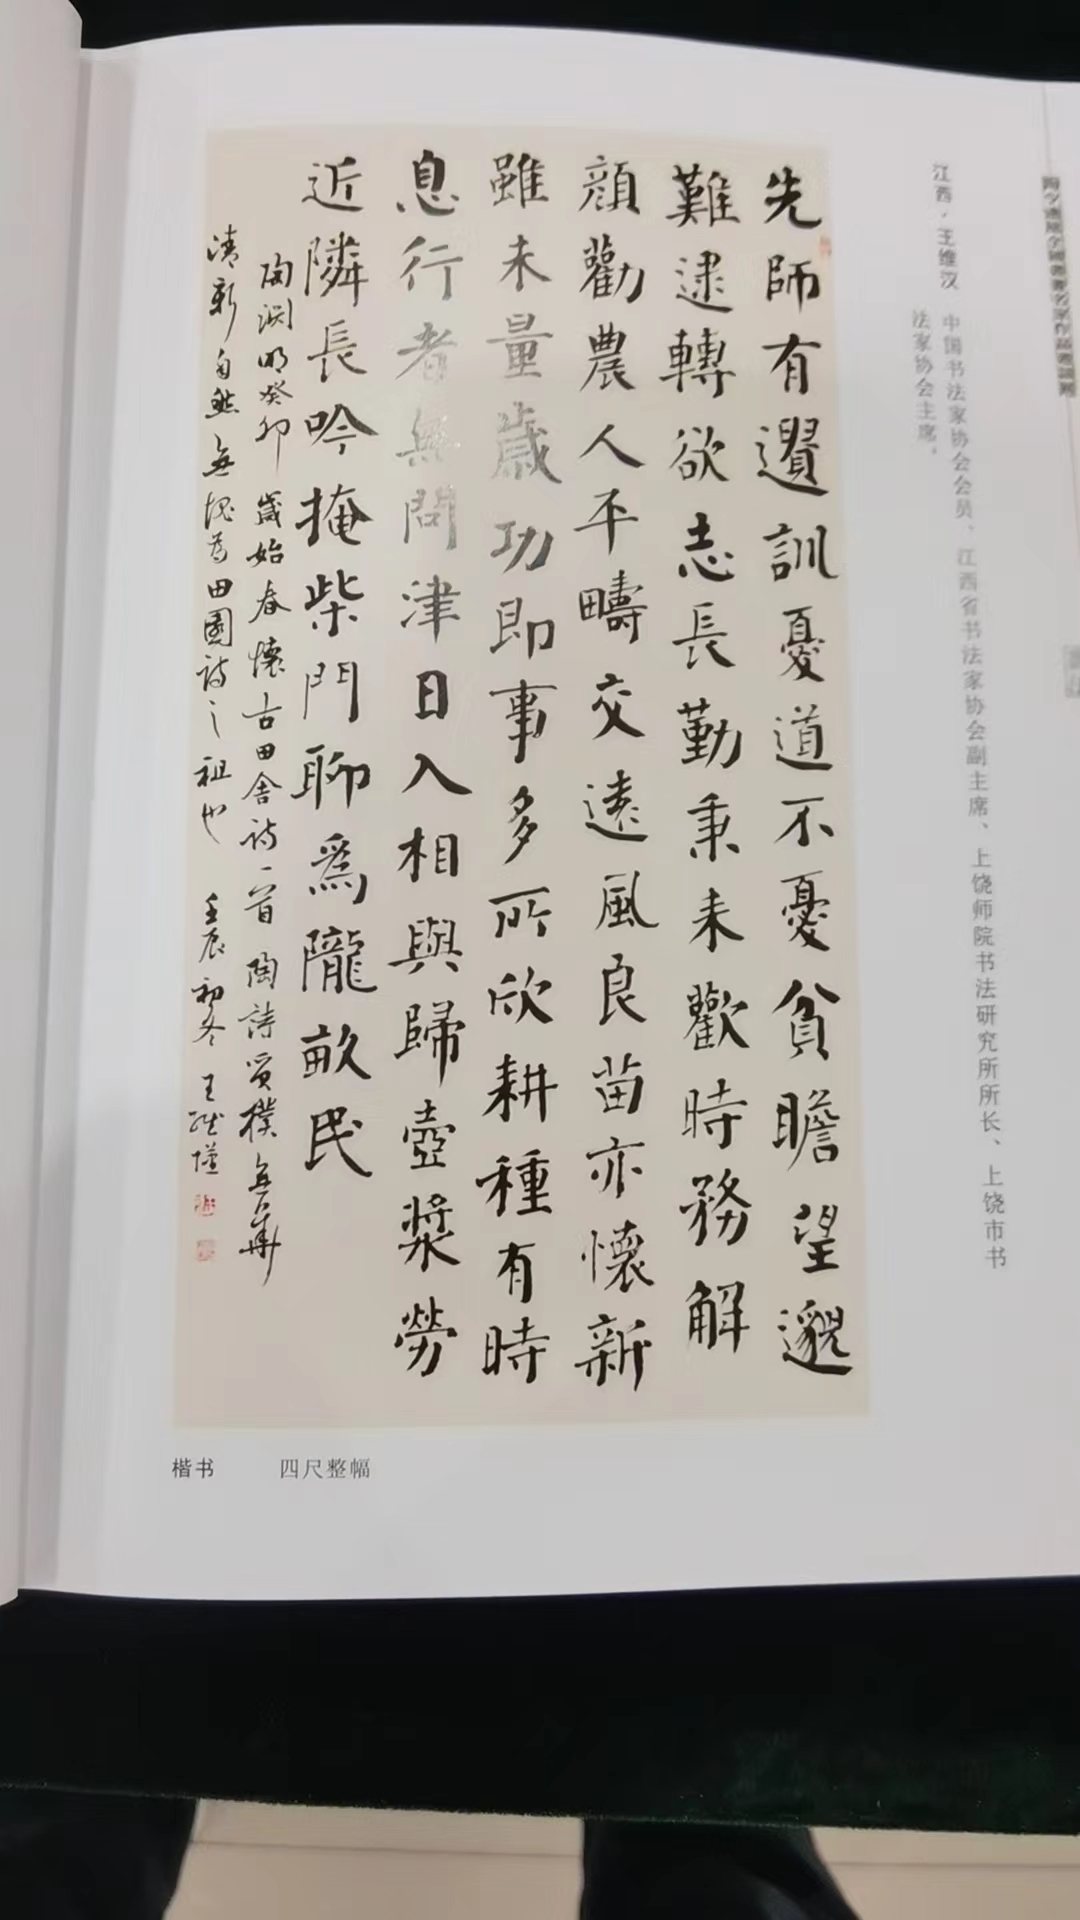 江西·王维汉 中国书法家协会会员、江西省书法家协会副主席、上饶师院书法研究所所长、上饶市书
法家协会主席。
先師有遺訓憂道不憂貧瞻望邈
難逮轉欲志長勤秉耒歡時務解
顏勸農人平疇交遠風良苗亦懷新
雖未量歲功即事多所欣耕種有時
息行者無問津日入相與歸壺漿勞
近隣長吟掩柴門聊爲隴畝民
陶渊明癸卯歲始春懷古田舍詩一首陶詩質樸無華
清新自然無愧為田園詩之祖也 壬辰初冬 王維漢
楷书 四尺整幅